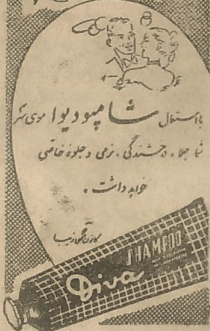 با استعمال شامپو دیوا موی سر
شما جلا، درخشندگی، نرمی و جلوه خاصی
خواهد داشت.
SHAMPOO
Diva